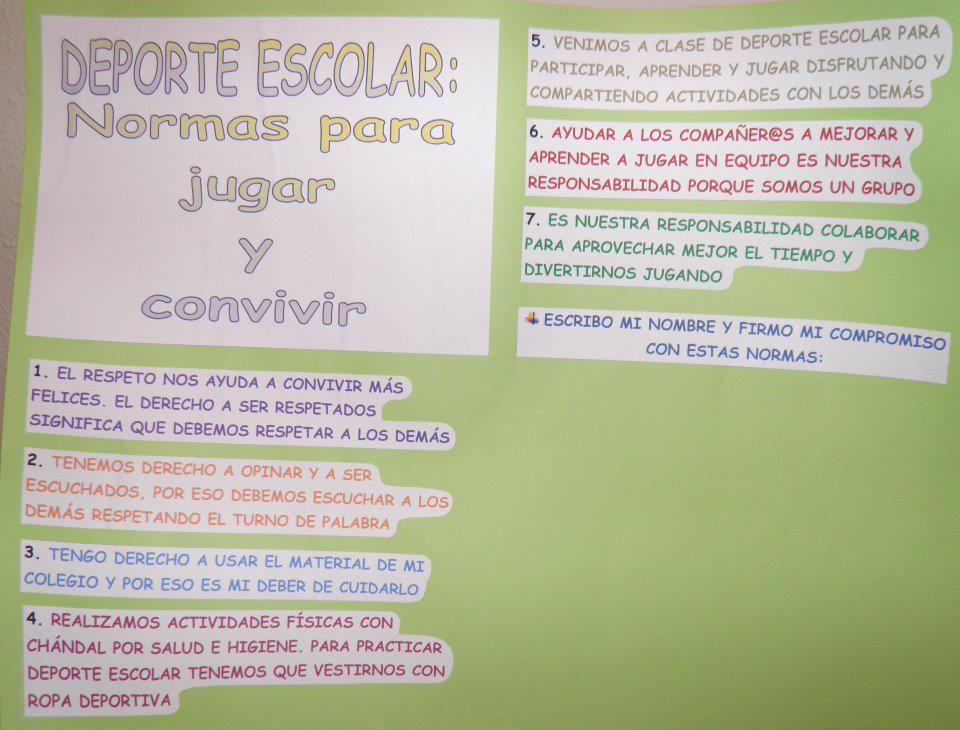 DEPORTE ESCOLAR:
Normas para
jugar
y
convivir
1. EL RESPETO NOS AYUDA A CONVIVIR MÁS
FELICES. EL DERECHO A SER RESPETADOS
SIGNIFICA QUE DEBEMOS RESPETAR A LOS DEMÁS
2. TENEMOS DERECHO A OPINAR Y A SER
ESCUCHADOS, POR ESO DEBEMOS ESCUCHAR A LOS
DEMÁS RESPETANDO EL TURNO DE PALABRA
3. TENGO DERECHO A USAR EL MATERIAL DE MI
COLEGIO Y POR ESO ES MI DEBER DE CUIDARLO
4. REALIZAMOS ACTIVIDADES FÍSICAS CON
CHÁNDAL POR SALUD E HIGIENE. PARA PRACTICAR
DEPORTE ESCOLAR TENEMOS QUE VESTIRNOS CON
ROPA DEPORTIVA
5. VENIMOS A CLASE DE DEPORTE ESCOLAR PARA
PARTICIPAR, APRENDER Y JUGAR DISFRUTANDO Y
COMPARTIENDO ACTIVIDADES CON LOS DEMÁS
6. AYUDAR A LOS COMPAÑER@S A MEJORAR Y
APRENDER A JUGAR EN EQUIPO ES NUESTRA
RESPONSABILIDAD PORQUE SOMOS UN GRUPO
7. ES NUESTRA RESPONSABILIDAD COLABORAR
PARA APROVECHAR MEJOR EL TIEMPO Y
DIVERTIRNOS JUGANDO
ESCRIBO MI NOMBRE Y FIRMO MI COMPROMISO
CON ESTAS NORMAS: